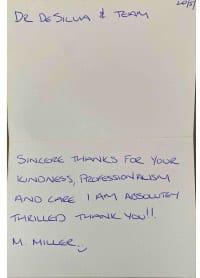 20/5/
DR DE SILVA & TEAM
SINCERE THANKS FOR YOUR
KINDNESS, PROFESSIONALISM
AND CARE I AM ABSOLUTEY
THRILLED THANK YOU!!
M. MILLER